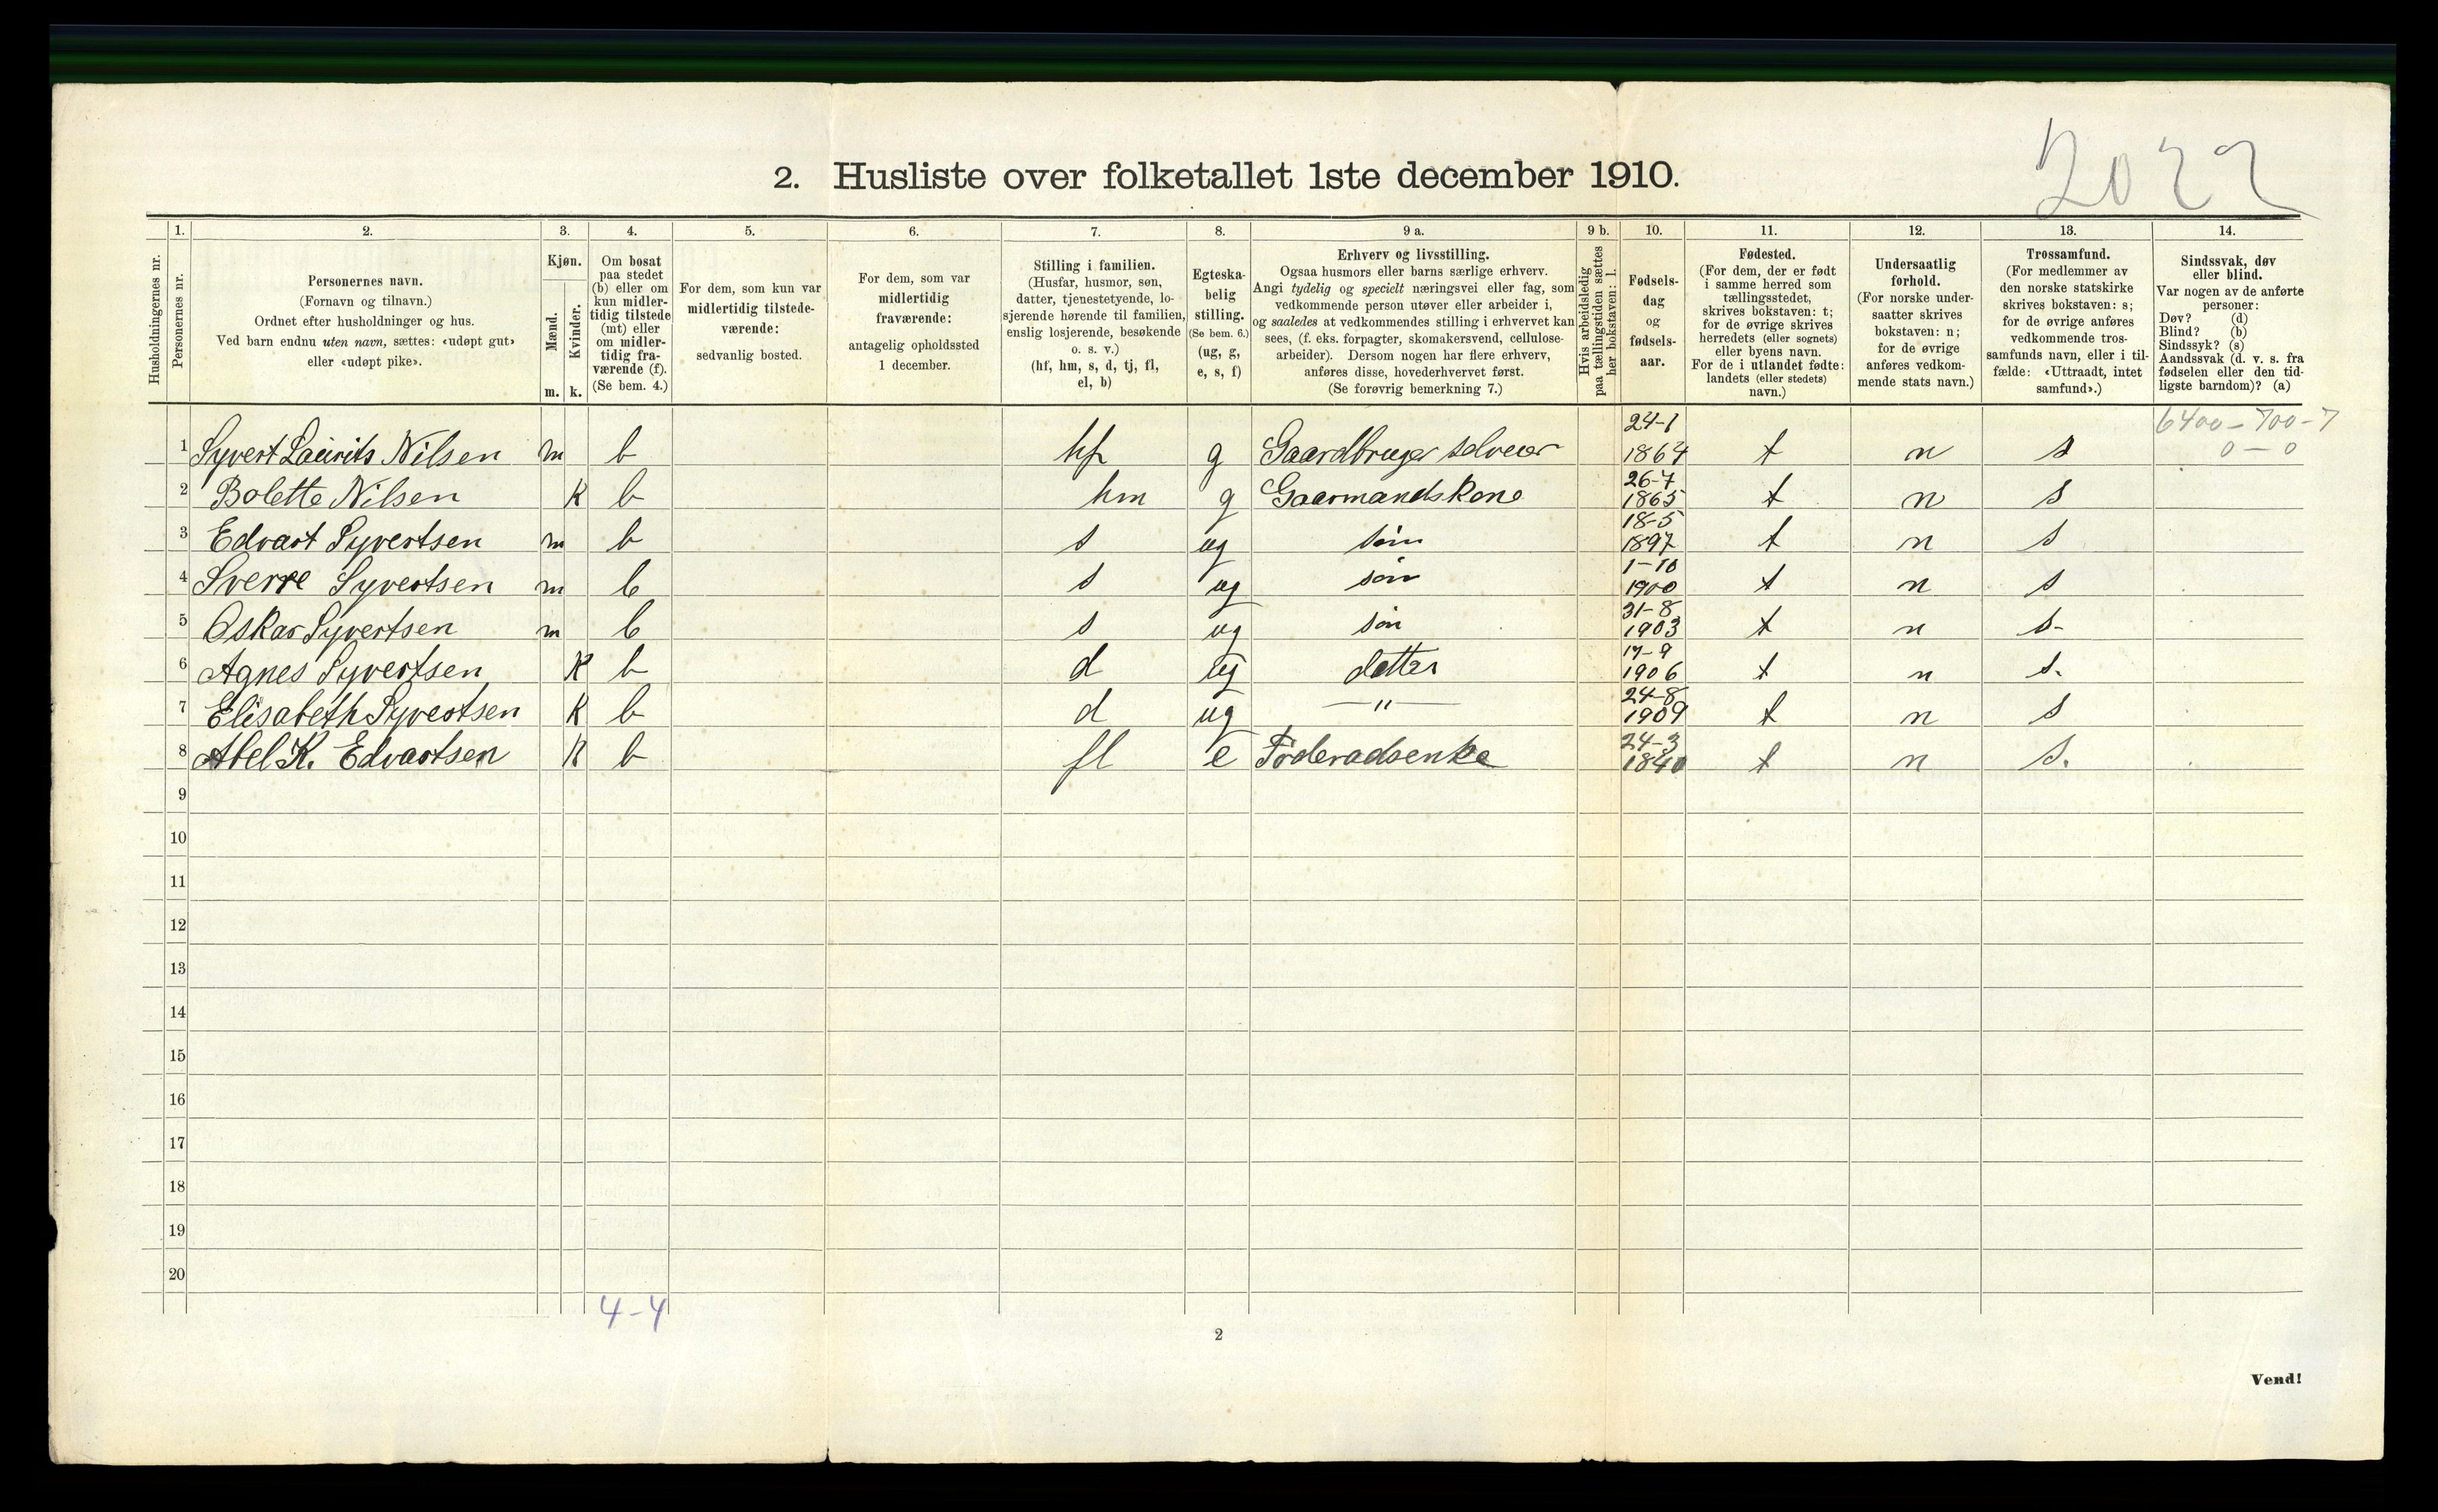 2022
2. Husliste over folketallet 1ste december 1910.
Husholdningernes nr.
1. Personernes nr.
2. Personernes navn.
(Fornavn og tilnavn.)
Ordnet efter husholdninger og hus.
Ved barn endnu uten navn, sættes: «udøpt gut»
eller «udøpt pike».
3. Kjøn.
Mænd. Kvinder.
m. k.
4. Om bosat
paa stedet
(b) eller om
kun midler-
tidig tilstede
(mt) eller
om midler-
tidig fra-
værende (f).
(Se bem. 4.)
5. For dem, som kun var
midlertidig tilstede-
værende:
sedvanlig bosted.
6. For dem, som var
midlertidig
fraværende:
antagelig opholdssted
1 december.
7. Stilling i familien.
(Husfar, husmor, søn,
datter, tjenestetyende, lo-
sjerende hørende til familien,
enslig losjerende, besøkende
o. s. v.)
(hf, hm, s, d, tj, fl,
el, b)
8. Egteska-
belig
stilling.
(Se bem. 6.)
(ug, g,
e, s, f)
9 a. Erhverv og livsstilling.
Ogsaa husmors eller barns særlige erhverv.
Angi tydelig og specielt næringsvei eller fag, som
vedkommende person utøver eller arbeider i,
og saaledes at vedkommendes stilling i erhvervet kan
sees, (f. eks. forpagter, skomakersvend, cellulose-
arbeider). Dersom nogen har flere erhverv,
anføres disse, hovederhvervet først.
(Se forøvrig bemerkning 7.)
9 b. Hvis arbeidsledig
paa tællingstiden sættes
her bokstaven: l.
10. Fødsels-
dag
og
fødsels-
aar.
11. Fødested.
(For dem, der er født
i samme herred som
tællingsstedet,
skrives bokstaven: t;
for de øvrige skrives
herredets (eller sognets)
eller byens navn.
For de i utlandet fødte:
landets (eller stedets)
navn.)
12. Undersaatlig
forhold.
(For norske under-
saatter skrives
bokstaven: n;
for de øvrige
anføres vedkom-
mende stats navn.)
13. Trossamfund.
(For medlemmer av
den norske statskirke
skrives bokstaven: s;
for de øvrige anføres
vedkommende tros-
samfunds navn, eller i til-
fælde: «Uttraadt, intet
samfund».)
14. Sindssvak, døv
eller blind.
Var nogen av de anførte
personer:
Døv? (d)
Blind? (b)
Sindssyk? (s)
Aandssvak (d. v. s. fra
fødselen eller den tid-
ligste barndom)? (a)
6400 – 700 – 7
0 – 0
1 Syvert Laurits Nilsen m b hf g Gaardbruger selveier 24-1 1864 t n s
2 Bolette Nilsen K b hm g Gaarmandskone 26-7 1865 t n s
3 Edvart Syvertsen m b s ug søn 18-5 1897 t n s
4 Sverre Syvertsen m b s ug søn 1-10 1900 t n s
5 Oskar Syvertsen m b s ug søn 31-8 1903 t n s.
6 Agnes Syvertsen K b d ug datter 17-9 1906 t n s.
7 Elisabeth Syvertsen K b d ug —"— 24-8 1909 t n s
8 Abel K. Edvartsen K b fl e Føderadsenke 24-3 1840 t n s.
9
10
11
12
13
14
15
16
17
18
19
20
4-4
2
Vend!